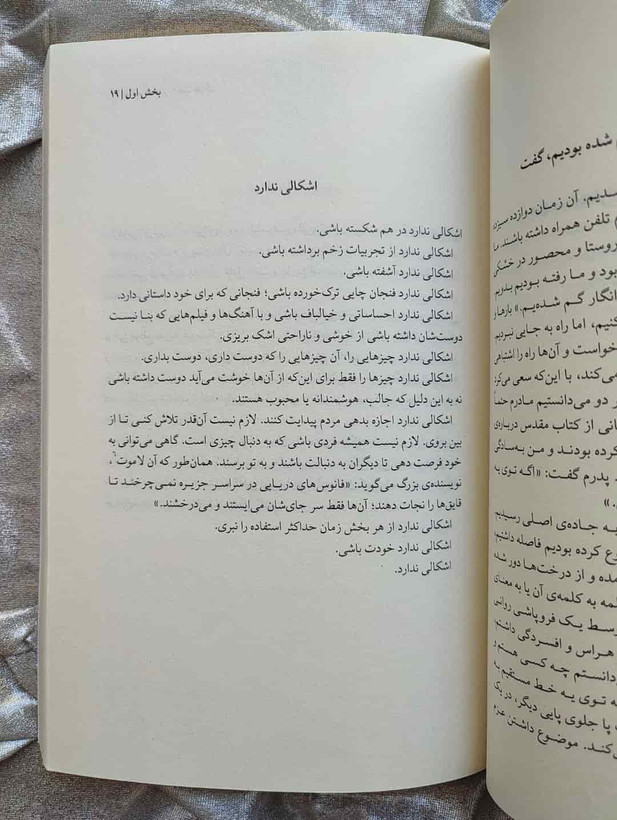 بخش اول | ۱۹
اشکالی ندارد
اشکالی ندارد در هم شکسته باشی.
اشکالی ندارد از تجربیات زخم برداشته باشی.
اشکالی ندارد آشفته باشی.
اشکالی ندارد فنجان چایی ترک‌خورده باشی؛ فنجانی که برای خود داستانی دارد.
اشکالی ندارد احساساتی و خیالباف باشی و با آهنگ‌ها و فیلم‌هایی که بنا نیست
دوست‌شان داشته باشی از خوشی و ناراحتی اشک بریزی.
اشکالی ندارد چیزهایی را، آن چیزهایی را که دوست داری، دوست بداری.
اشکالی ندارد چیزها را فقط برای این‌که از آن‌ها خوشت می‌آید دوست داشته باشی
نه به این دلیل که جالب، هوشمندانه یا محبوب هستند.
اشکالی ندارد اجازه بدهی مردم پیدایت کنند. لازم نیست آن‌قدر تلاش کنی تا از
بین بروی. لازم نیست همیشه فردی باشی که به دنبال چیزی است. گاهی می‌توانی به
خود فرصت دهی تا دیگران به دنبالت باشند و به تو برسند. همان‌طور که آن لاموت۶،
نویسنده‌ی بزرگ می‌گوید: «فانوس‌های دریایی در سراسر جزیره نمی‌چرخند تا
قایق‌ها را نجات دهند؛ آن‌ها فقط سر جای‌شان می‌ایستند و می‌درخشند.»
اشکالی ندارد از هر بخش زمان حداکثر استفاده را نبری.
اشکالی ندارد خودت باشی.
اشکالی ندارد.
شده بودیم، گفت
سدیم. آن زمان دوازده سیزده
تلفن همراه داشته باشند. ما
روستا و محصور در خشکی
بود و ما رفته بودیم بدویم
انگار گم شده‌یم.» بارها و
کنیم، اما راه به جایی نبردیم
خواست و آن‌ها راه را اشتباهی
می‌کند، با این‌که سعی می‌کرد
دو می‌دانستیم مادرم حتماً
انی از کتاب مقدس درباره‌ی
کرده بودند و من به‌سادگی
پدرم گفت: «اگه توی یه
.»
به جاده‌ی اصلی رسیدیم
ع کرده بودیم فاصله داشتیم؛
مده و از درخت‌ها دور شده
لمه به کلمه‌ی آن یا به معنای
وسط یک فروپاشی روانی
هراس و افسردگی داشتم،
دانستم چه کسی هستم و
ه توی یه خط مستقیم به
پا جلوی پایی دیگر، در یک
کند. موضوع داشتن عزم